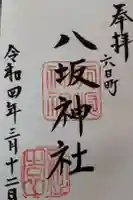 奉拝
六日町
八坂神社
令和四年三月十二日